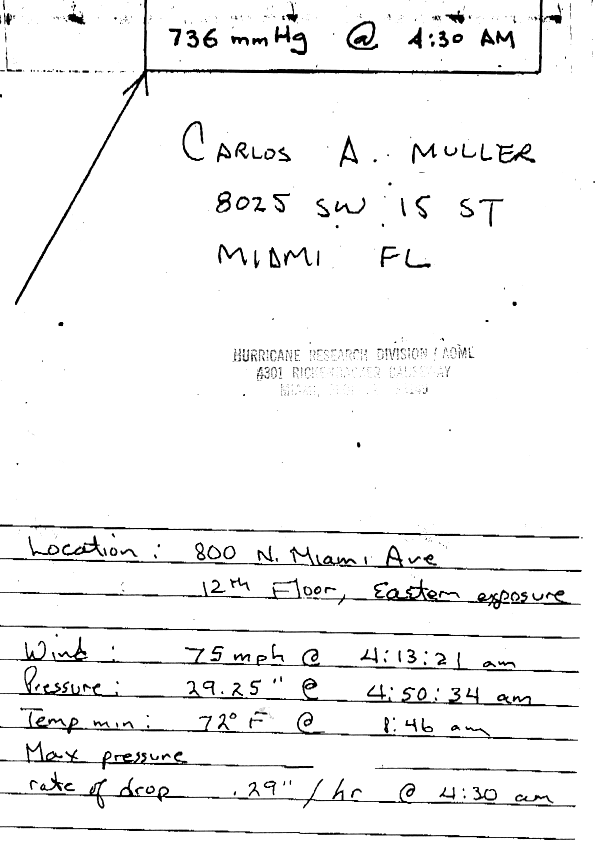 736 mmHg @ 4:30 AM
CARLOS A. MULLER
8025 SW 15 ST
MIAMI FL
HURRICANE RESEARCH DIVISION / AOML
4301
Location : 800 N. Miami Ave
12th Floor, Eastern exposure
Wind : 75 mph @ 4:13:21 am
Pressure : 29.25" @ 4:50:34 am
Temp min : 72° F @ 8:46 am
Max pressure
rate of drop .29" / hr @ 4:30 am